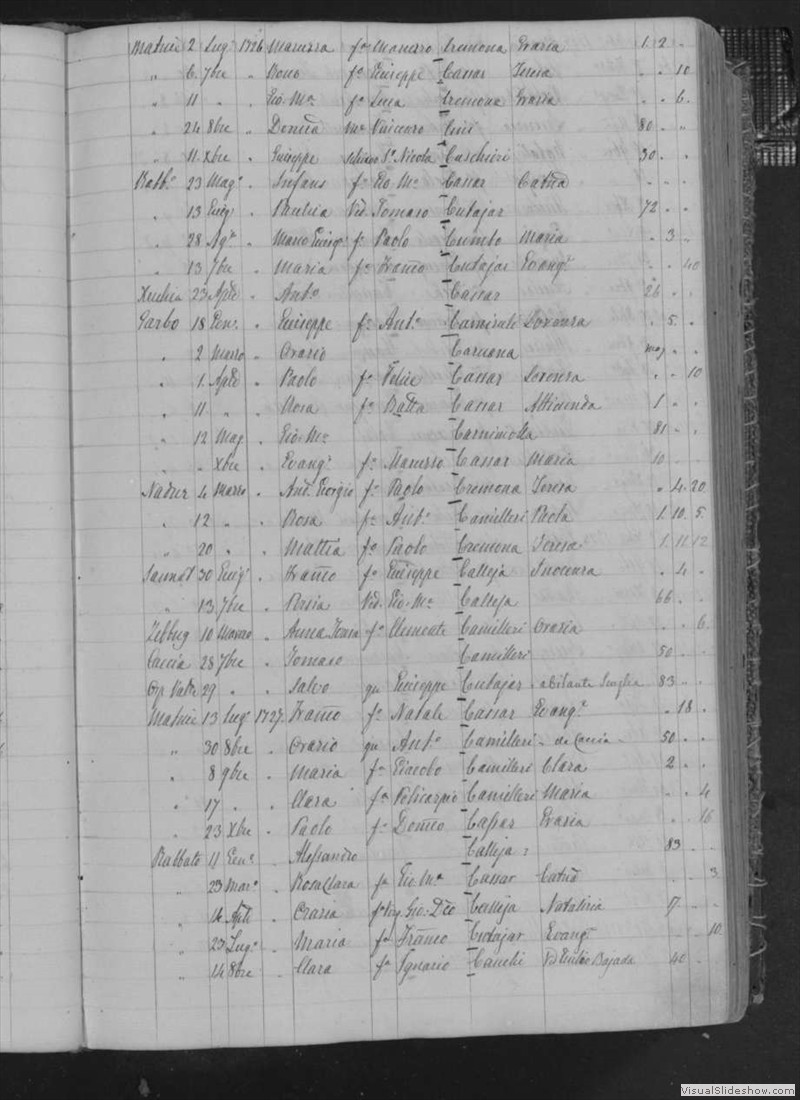 Matrice 2 Lug. 1726 Maruzza fa Maruzo Cremona Grazia 1. 2 "
" 6 7bre " Rono fo Giuseppe Cassar Teresa " " 10
" 11 " " Gio. Ma fo Luca Cremona Grazia " " 6.
" 24 8bre " Domca Me Vincenzo Cini 80 " "
" 11 Xbre " Giuseppe schiavo Sr Nicola Caschieri 30 " "
Rabbo 23 Mago " Infans fo Gio Ma Cassar Catna " " "
" 13 Giug. " Paulica Vid. Tomaso Cutajar 72 " "
" 28 Ago " Mario Giuse fo Paolo Cumbo Maria " 3 "
" 13 7bre " Maria fa Franco Cutajar Evanga " " 40
Xeuchia 23 Aple " Anto Cassar 26 " "
Garbo 18 Gen. " Giuseppe fo Anto Carnisale Lorenza " 5 "
" 2 Marzo " Orazio Caruana " "
" 1 Aple " Paolo fo Felice Cassar Lorenza " " 10
" 11 " " Rosa fa Batta Cassar 1 " "
" 12 Mag. " Gio. Ma 81 " "
" " Xbre " Evanga fa Maruzzo Cassar Maria 10 " "
Nadur 4 Marzo " And. Giorgio fo Paolo Cremona Teresa " 4. 20
" 12 " " Rosa fa Anto Camilleri Paola 1. 10. 5
" 20 " " Mattia fa Paolo Cremona Teresa 1. 11. 12
Sannat 30 Giug. " Franco fo Giuseppe Calleja Inocenza " 4 "
" 13 7bre " Persia Vid. Gio. Ma Calleja 66 " "
Zebbug 10 Marzo " Anna Teresa fa Clemente Camilleri Grazia " " 6
Caccia 28 7bre " Tomaso Camilleri 50 " "
29 " " Salvo qu Giuseppe Cutajar abitante 83 " "
Matrice 13 Lugo 1727 Franco fo Natale Cassar Evanga " 18 "
" 30 8bre " Orazio qu Anto Camilleri - de Caccia - 50 " "
" 8 9bre " Maria fa Giacobo Camilleri Clara 2 " "
" 17 " " Clara fa Policarpio Camilleri Maria " " 4
" 23 Xbre " Paolo fo Domco Cassar Grazia " " 16
Rabbato 11 Geno " Alessandro Calleja 83 " "
" 23 Maro " Rosa Clara fa Gio. Ma Cassar Catna " " 3
" 14 Aple " Grazia Gio. Dco Calleja Natalizia 17 " "
" 23 Lugo " Maria fa Franco Cutajar Evanga " " 10
" 14 8bre " Clara fa Ignazio Cauchi Bajada 40 " "
VisualSlideshow.com